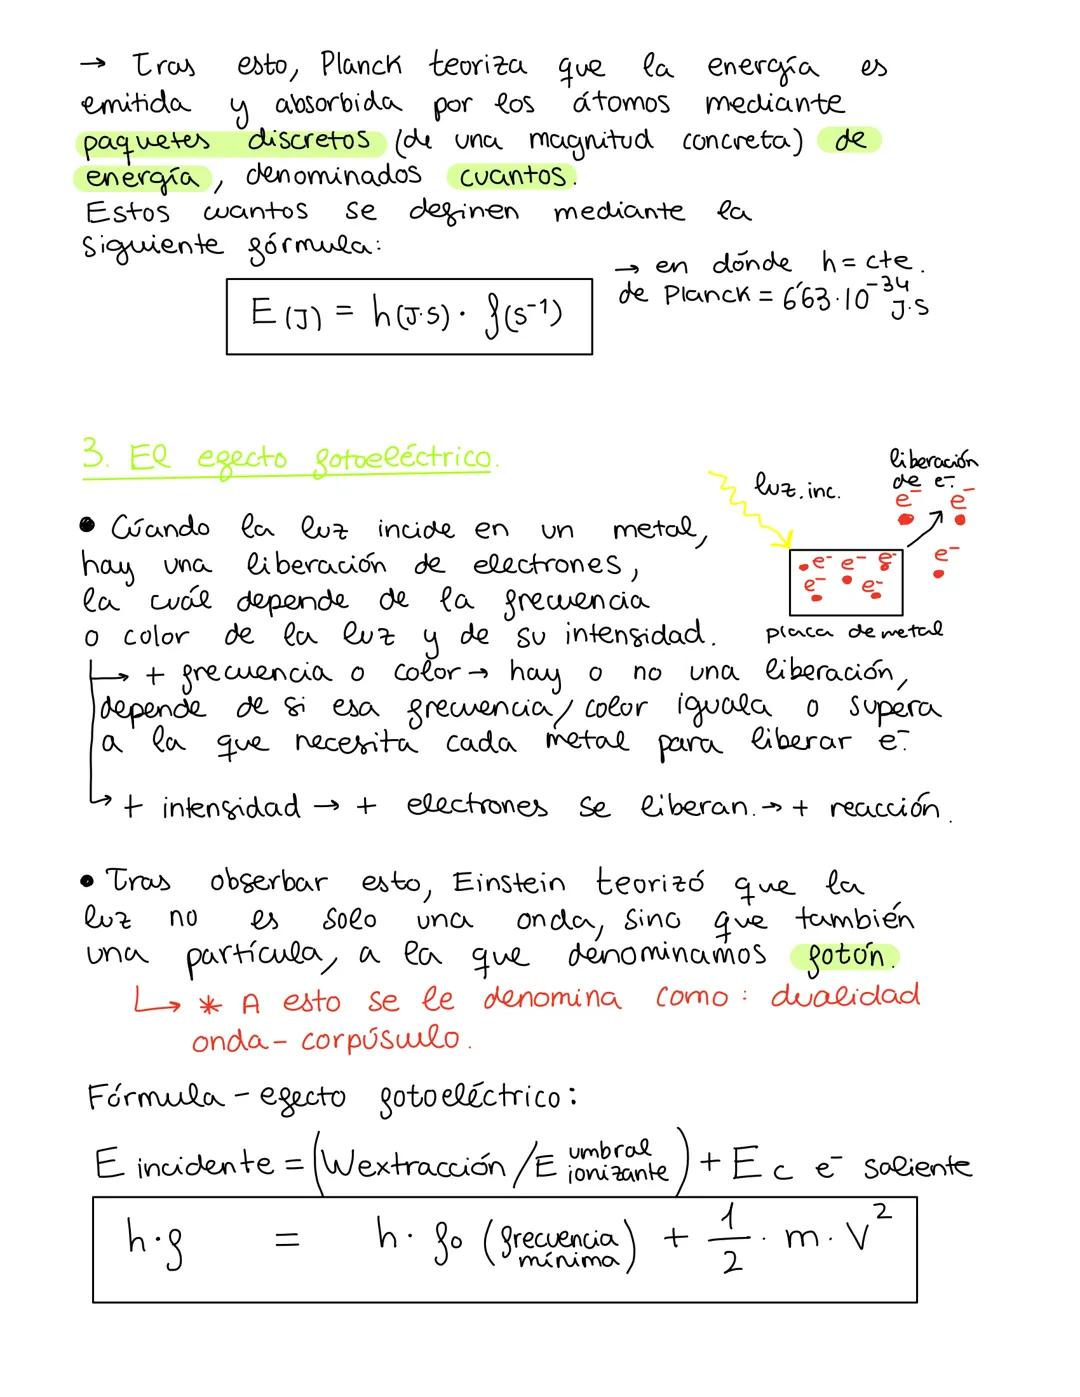 → Tras esto, Planck teoriza que la energía es
emitida y absorbida por los átomos mediante
paquetes discretos (de una magnitud concreta) de
energía, denominados cuantos.
Estos cuantos se definen mediante la
siguiente fórmula:
→ en dónde h = cte.
de Planck = 6'63·10⁻³⁴ J·s
E (J) = h (J·s) · f (s⁻¹)
3. El efecto fotoeléctrico.
liberación
de e⁻.
luz. inc.
e⁻ e⁻
e⁻
e⁻ e⁻ e⁻
e⁻ e⁻
placa de metal
• Cúando la luz incide en un metal,
hay una liberación de electrones,
la cuál depende de la frecuencia
o color de la luz y de su intensidad.
→ + frecuencia o color → hay o no una liberación,
depende de si esa frecuencia/color iguala o supera
a la que necesita cada metal para liberar e⁻.
→ + intensidad → + electrones se liberan. → + reacción.
• Tras obserbar esto, Einstein teorizó que la
luz no es solo una onda, sino que también
una partícula, a la que denominamos fotón.
→ * A esto se le denomina como: dualidad
onda-corpúsculo.
Fórmula - efecto fotoeléctrico:
E incidente = (Wextracción / E umbral ionizante) + Ec e⁻ saliente
h·f = h·f₀ (frecuencia mínima) + 1/2 · m · v²